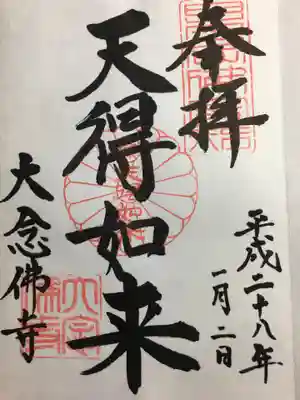 奉拝
平成二十八年
一月二日
天得如来
大念佛寺